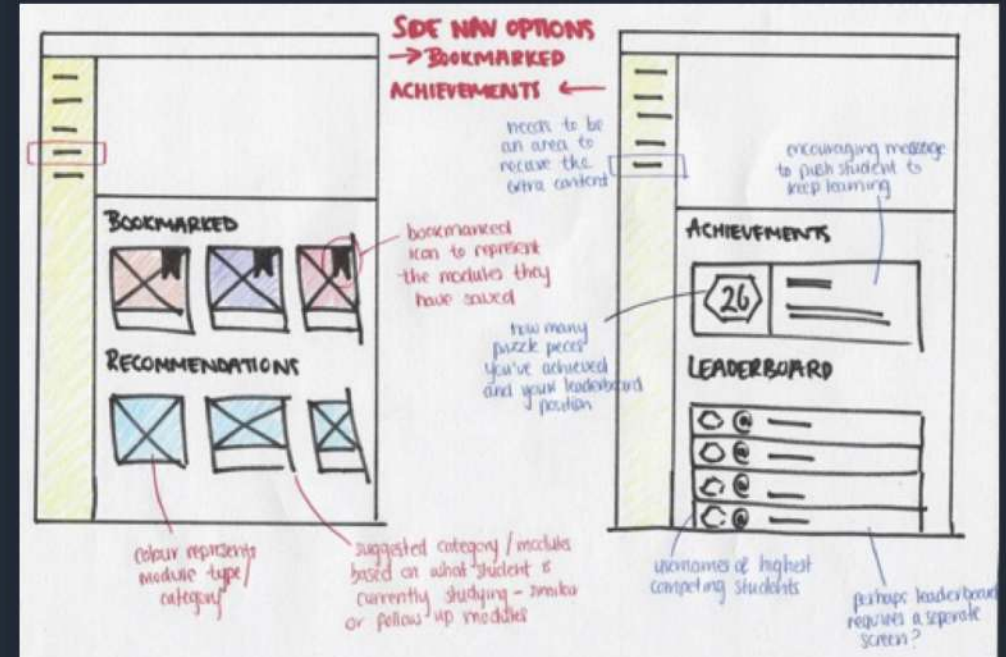 SIDE NAV OPTIONS
→ BOOKMARKED
ACHIEVEMENTS ←
BOOKMARKED
RECOMMENDATIONS
bookmarked
icon to represent
the modules they
have saved
colour represents
module type/
category
suggested category/modules
based on what student is
currently studying - similar
or follow up modules
needs to be
an area to
recieve the
extra content
encouraging message
to push student to
keep learning
ACHIEVEMENTS
26
how many
puzzle peces
you've achieved
and your leaderboard
position
LEADERBOARD
@
@
@
@
usernames of highest
competing students
perhaps leaderboard
requires a seperate
screen?